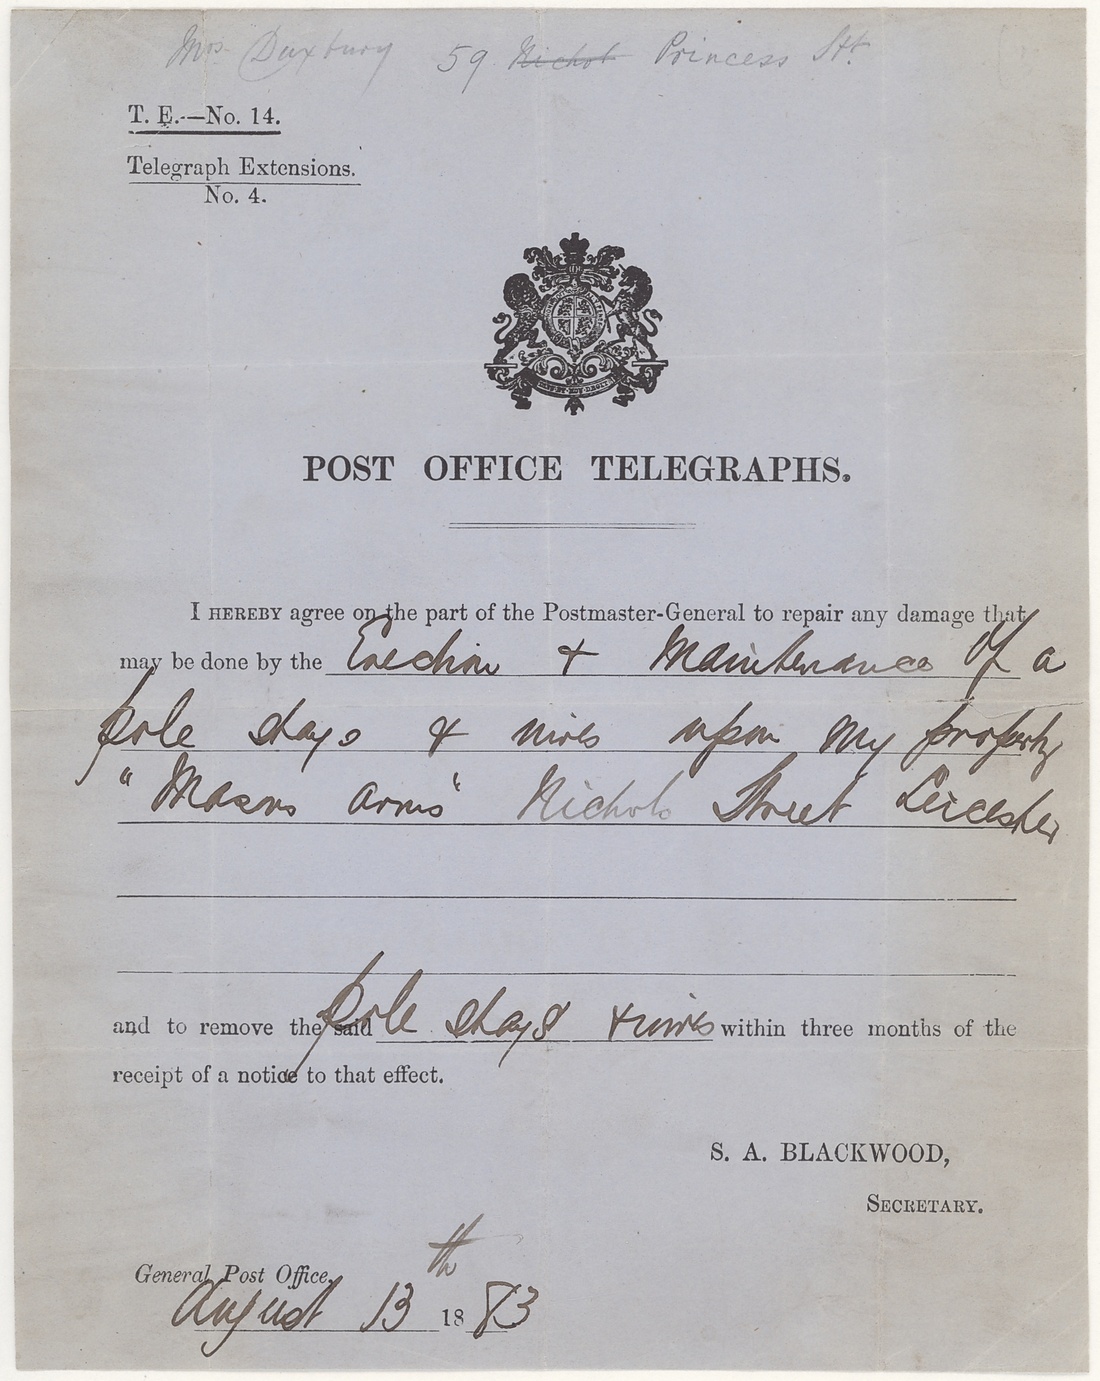 Mrs. Duxbury 59 Nichol Princess Stt.
T. E.—No. 14.
Telegraph Extensions.
No. 4.
DIEU ET MON DROIT
POST OFFICE TELEGRAPHS.
I HEREBY agree on the part of the Postmaster-General to repair any damage that
may be done by the Erection & Maintenance of a
pole stays & wires upon my property
"Masons arms" Nichols Street Leicester
and to remove the said pole stays & wires within three months of the
receipt of a notice to that effect.
S. A. BLACKWOOD,
SECRETARY.
General Post Office,
August 13th 1883